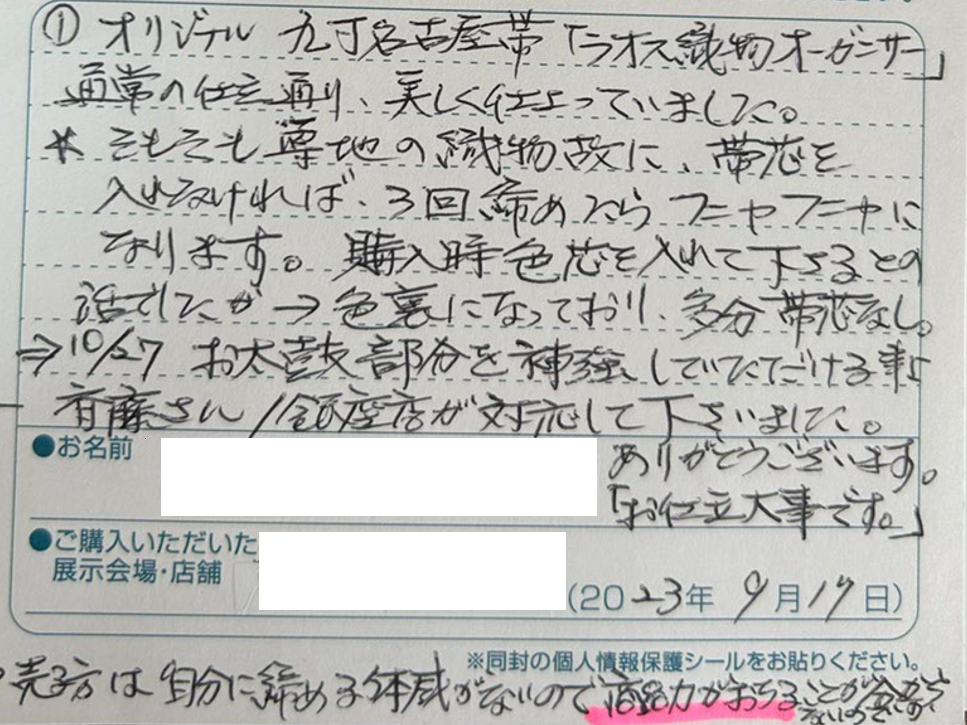 ① オリジナル 九寸名古屋帯「ラオス織物オーガンサー」
通常の仕立通り、美しく仕上っていました。
* そもそも薄地の織物故に、帯芯を
入れなければ、3回締めたら フニャフニャに
なります。購入時色芯を入れて下さるとの
話でしたが → 色裏になっており、多分帯芯なし。
⇒ 10/27 お太鼓部分を補強していただける事に
斉藤さん/銀座店が対応して下さいました。
●お名前
ありがとうございます。
「お仕立大事です。」
●ご購入いただいた
展示会場・店舗
(2023年 9月17日)
※同封の個人情報保護シールをお貼りください。
売る方は自分に締める体感がないので商品力がおちることが